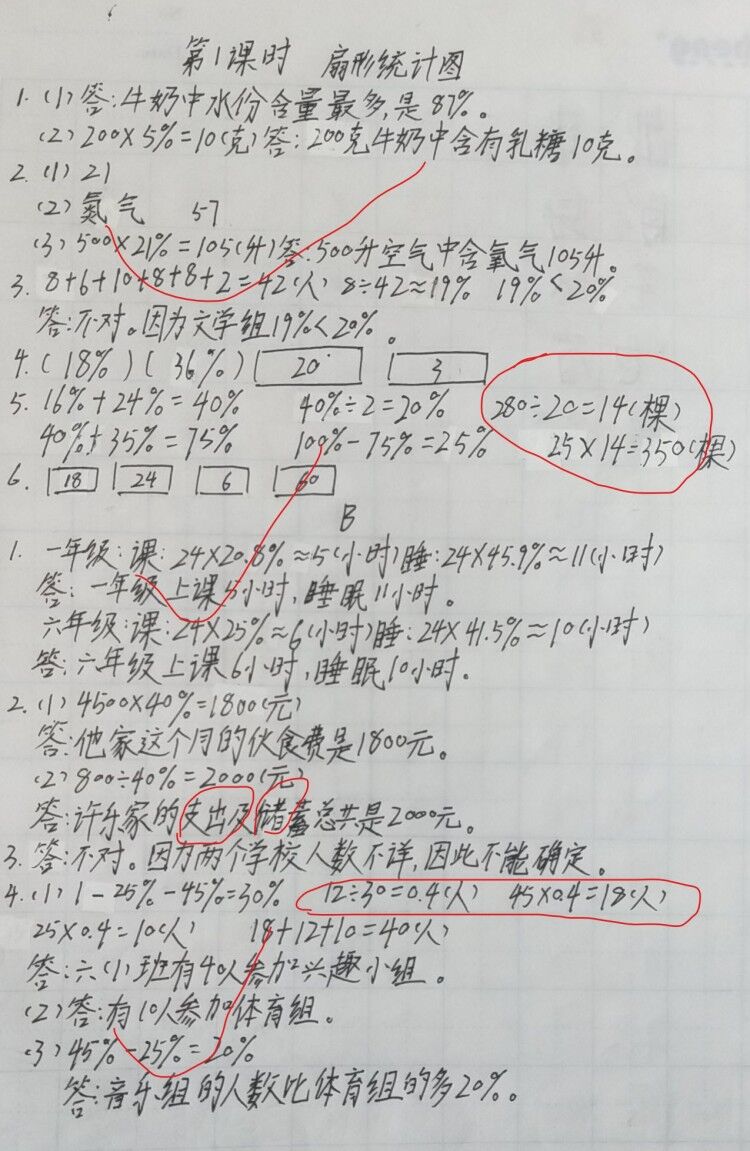 第1课时 扇形统计图
1. (1)答:牛奶中水份含量最多,是87%。
(2) 200×5%=10(克)答:200克牛奶中含有乳糖10克。
2. (1) 21
(2) 氮气 57
(3) 500×21%=105(升)答:500升空气中含氧气105升。
3. 8+6+10+8+8+2=42(人) 8÷42≈19% 19%<20%
答:不对。因为文学组19%<20%。
4. (18%)(36%) 20 3
5. 16%+24%=40% 40%÷2=20% 280÷20=14(棵)
40%+35%=75% 100%-75%=25% 25×14=350(棵)
6. 18 24 6 60
B
1. 一年级:课:24×20.8%≈5(小时)睡:24×45.9%≈11(小时)
答:一年级上课5小时,睡眠11小时。
六年级:课:24×25%≈6(小时)睡:24×41.5%≈10(小时)
答:六年级上课6小时,睡眠10小时。
2. (1) 4500×40%=1800(元)
答:他家这个月的伙食费是1800元。
(2) 800÷40%=2000(元)
答:许乐家的支出及储蓄总共是2000元。
3. 答:不对。因为两个学校人数不详,因此不能确定。
4. (1) 1-25%-45%=30% 12÷30=0.4(人) 45×0.4=18(人)
25×0.4=10(人) 18+12+10=40(人)
答:六(1)班有40人参加兴趣小组。
(2)答:有10人参加体育组。
(3) 45%-25%=20%
答:音乐组的人数比体育组的多20%。